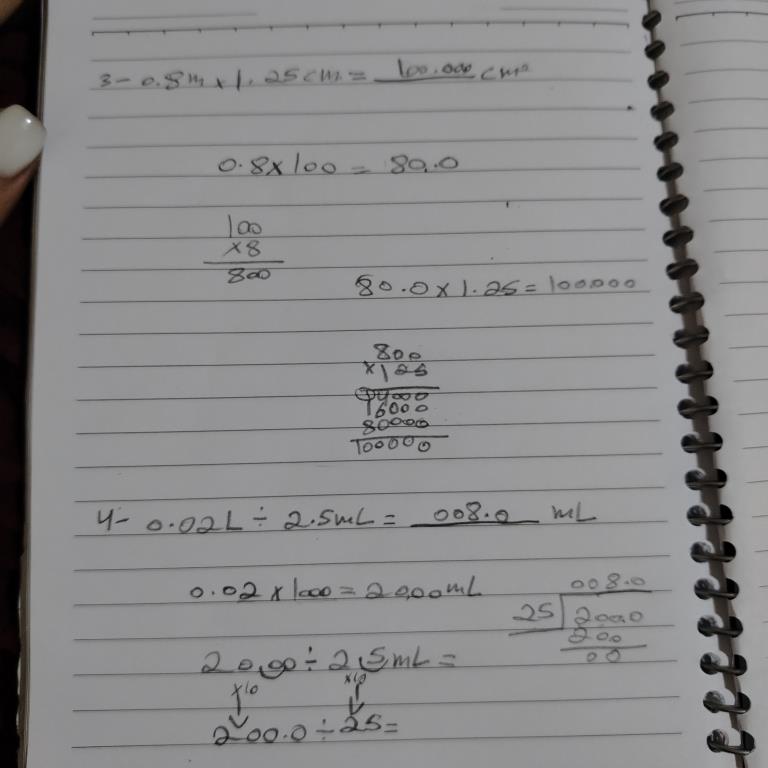 3- 0.8m x 1.25cm = 100.000 cm²
0.8 x 100 = 80.0
100
x8
800
80.0 x 1.25 = 100.000
800
x125
4000
16000
80000
100000
4- 0.02L ÷ 2.5mL = 008.0 mL
0.02 x 1000 = 20.00mL
008.0
25 200.0
200
00
20.00 ÷ 2.5mL =
x10 x10
200.0 ÷ 25 =